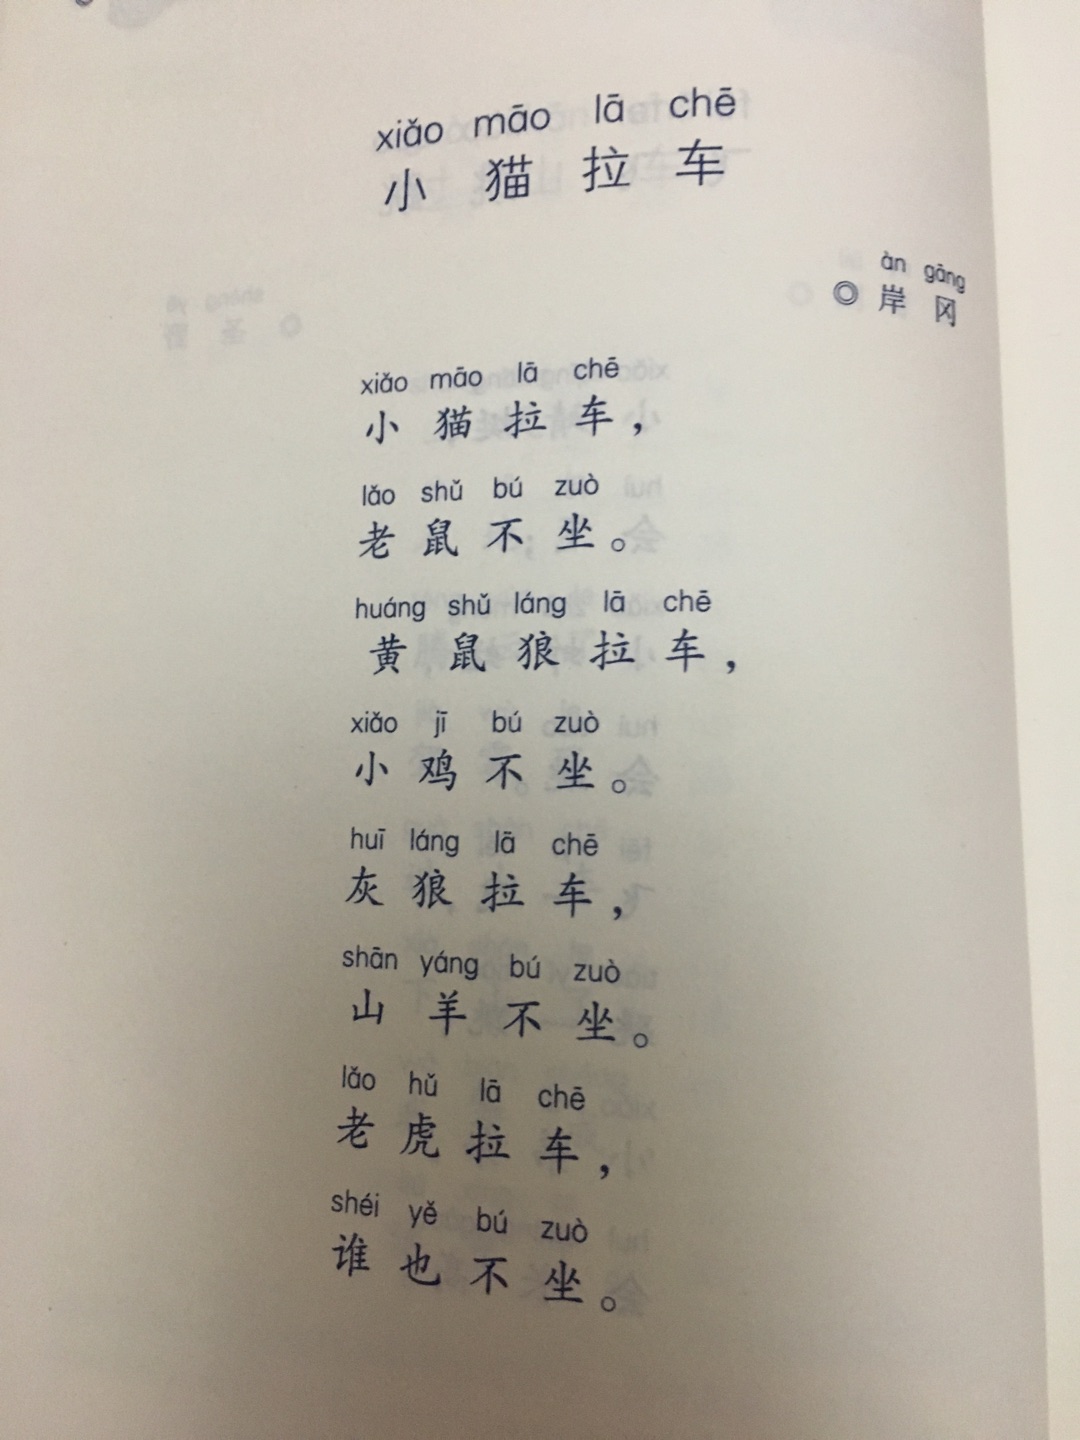 xiǎo māo lā chē
小猫拉车
àn gāng
◎岸冈
xiǎo māo lā chē
小猫拉车，
lǎo shǔ bú zuò
老鼠不坐。
huáng shǔ láng lā chē
黄鼠狼拉车，
xiǎo jī bú zuò
小鸡不坐。
huī láng lā chē
灰狼拉车，
shān yáng bú zuò
山羊不坐。
lǎo hǔ lā chē
老虎拉车，
shéi yě bú zuò
谁也不坐。